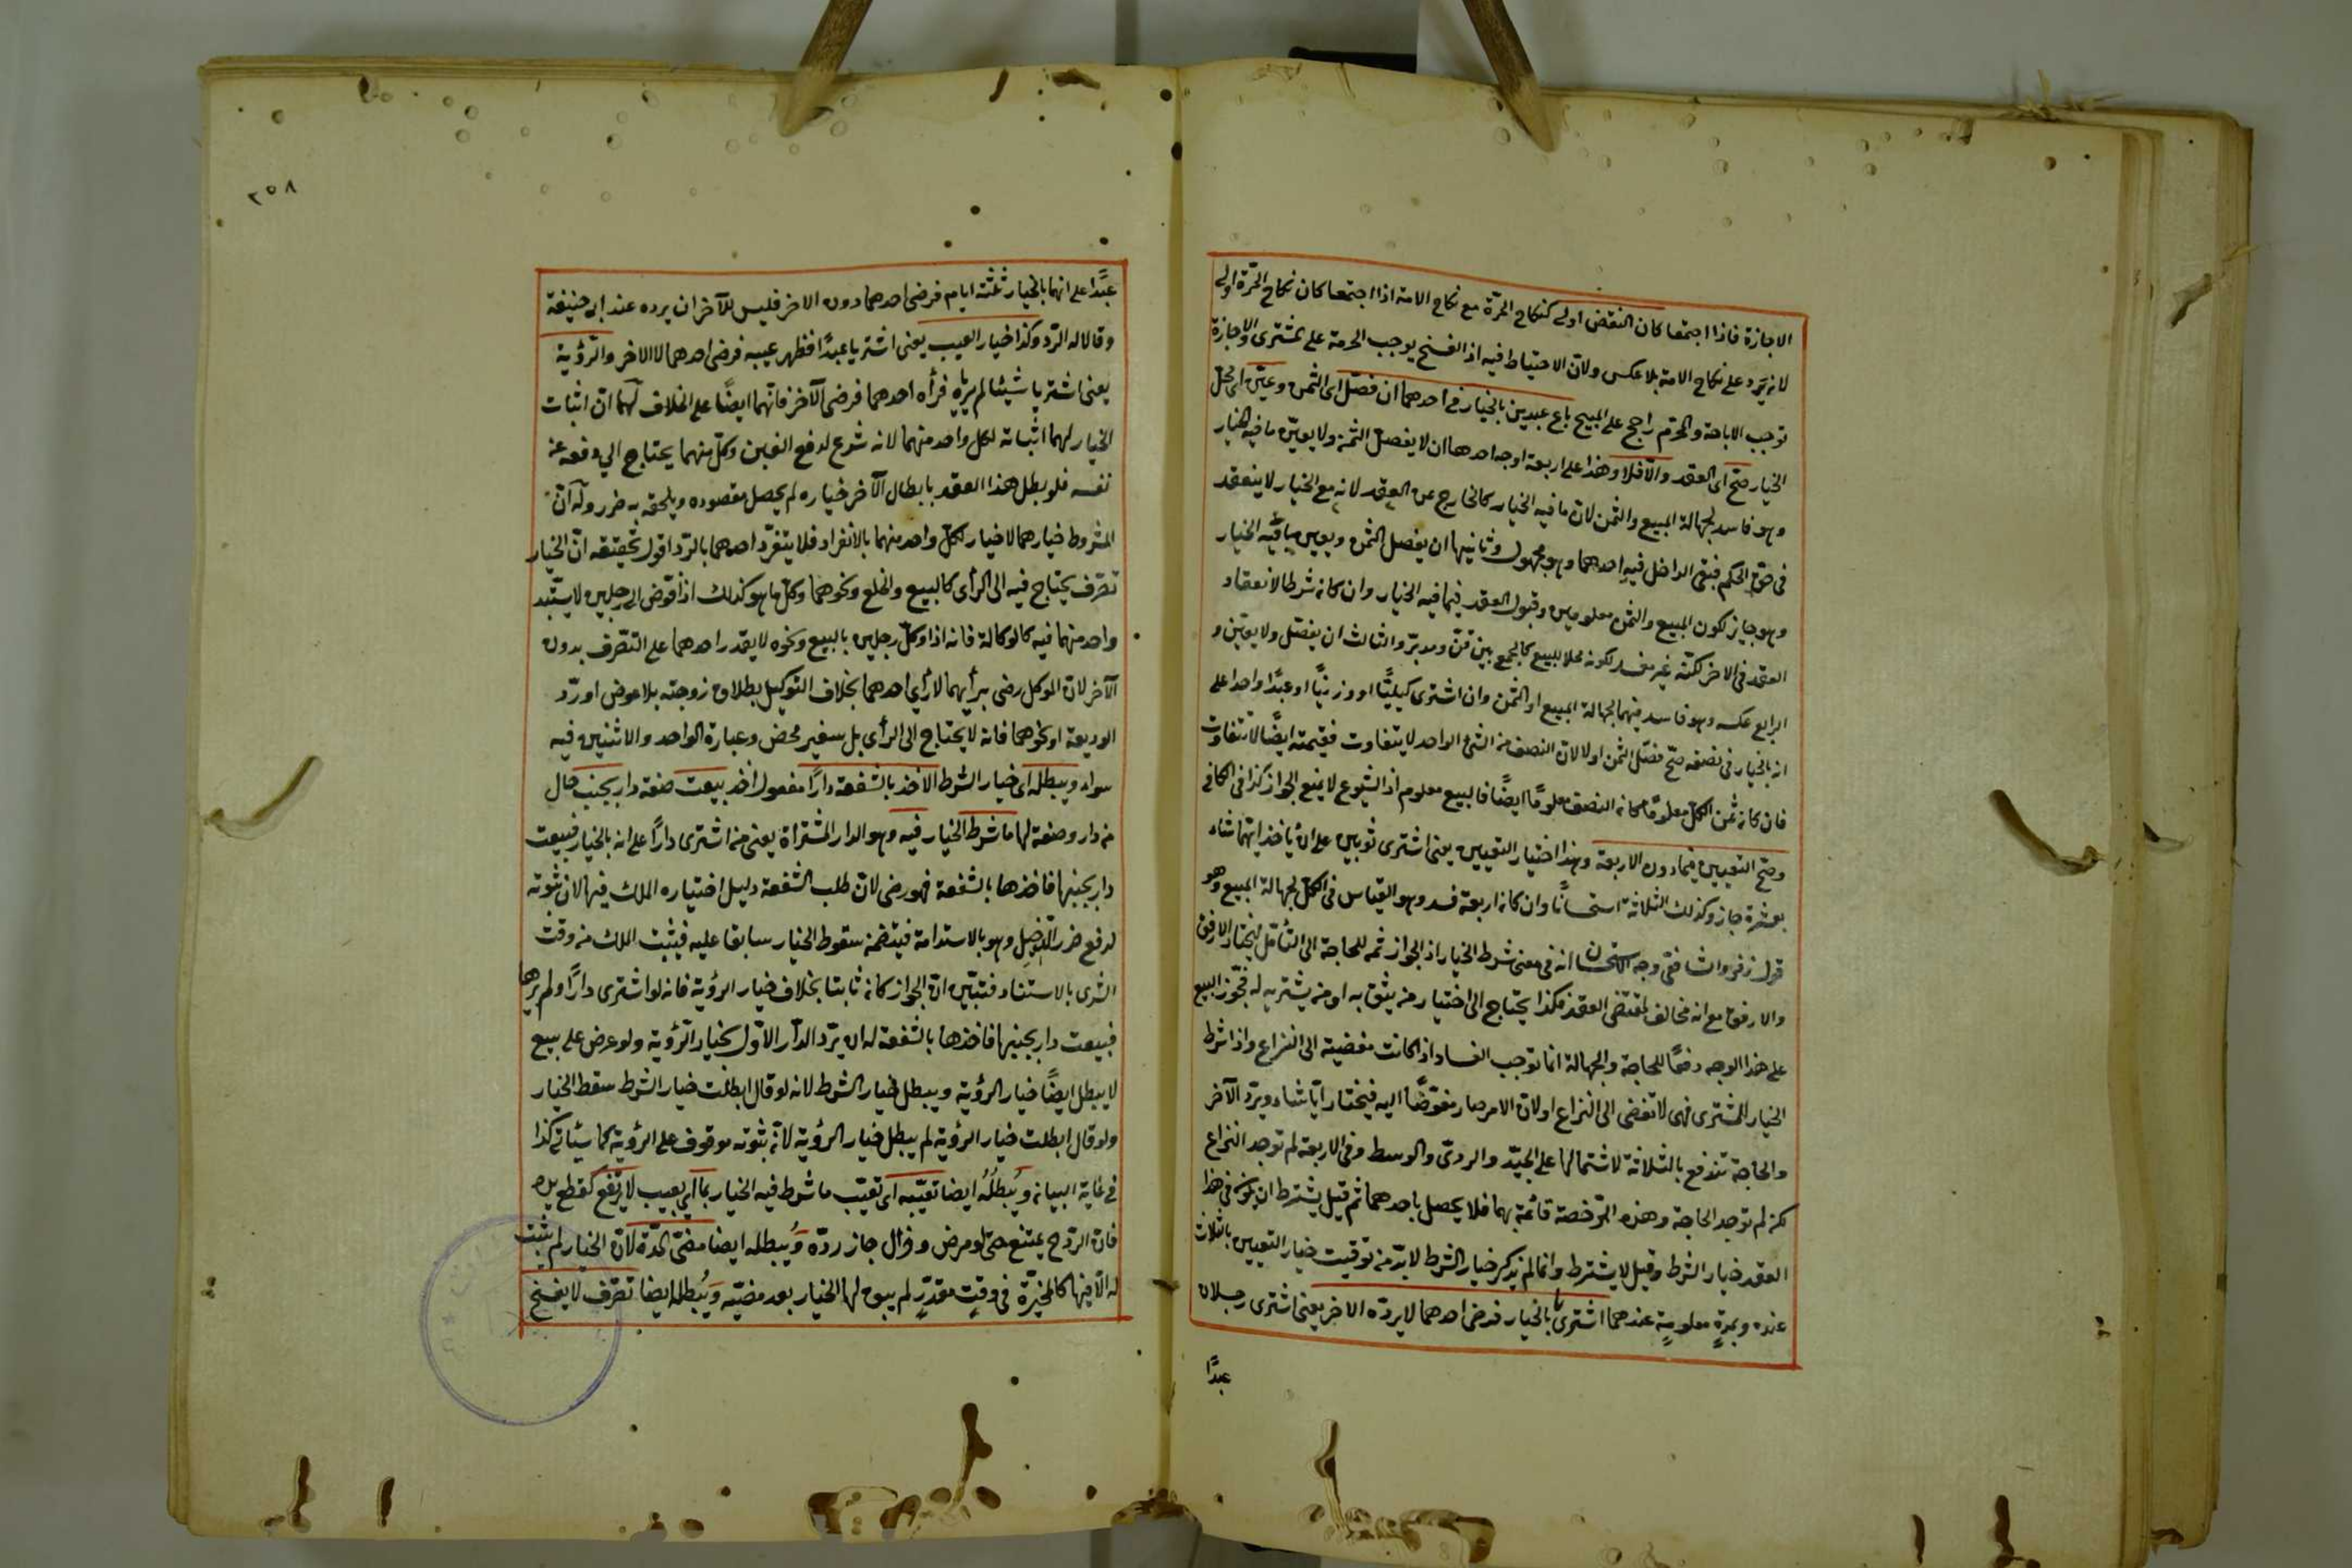 الاجازة فاذا اجتمعا كان النقض اولى كنكاح الحرّة مع نكاح الامة اذا اجتمعا كان نكاح الحرّة اولى
لانه يرد على نكاح الامة بلا عكس ولان الاحتياط فيه اذ الفسخ يوجب الحرمة على المشترى والاجازة
توجب الاباحة والمحرّم راجح على المبيح باع عبدين بالخيار فى احدهما ان فصّل اى الثمن وعيّن اى محل
الخيار صحّ اى العقد والّا فلا وهذا على اربعة اوجه احدها ان لا يفصل الثمن ولا يعيّن ما فيه الخيار
وهو فاسد لجهالة المبيع والثمن لان ما فيه الخيار كالخارج عن العقد لانه مع الخيار لا ينعقد
فى حقّ الحكم فبقى الداخل فيه احدهما وهو مجهول وثانيها ان يفصل الثمن ويعين ما فيه الخيار
وهو جايز لكون المبيع والثمن معلومين وقبول العقد فيما فيه الخيار وان كان شرطا لانعقاد
العقد فى الاخر لكنّه غير مفسد لكونه محلا للبيع كالجمع بين قنّ ومدبّر والثالث ان يفصّل ولا يعيّن و
الرابع عكسه وهو فاسد فيهما لجهالة المبيع او الثمن وان اشترى كيليًّا او وزنيًّا او عبدًا واحدا على
انه بالخيار فى نصفه صحّ فصّل الثمن او لا لان النصف من الشئ الواحد لا يتفاوت فقيمته ايضًا لا تتفاوت
فان كان ثمن الكلّ معلومًا كان النصف معلومًا ايضًا فالمبيع معلوم اذ الشيوع لا يمنع الجواز كذا فى الكافى
وصحّ التعيين فيما دون الاربعة وهذا اختيار التعيين يعنى اشترى ثوبين على ان ياخذ ايهما شاء
بعشرة جاز وكذلك الثلاثة استحسانًا وان كان اربعة فسد وهو القياس فى الكلّ لجهالة المبيع وهو
قول زفر والشافعى وجه الاستحسان انه فى معنى شرط الخيار اذ الجواز ثمه للحاجة الى التأمّل ليختار الارفق
والاوفق مع انه مخالف لمقتضى العقد فكذا يحتاج الى اختيار من يثق به او من يشتريه له فجوّز البيع
على هذا الوجه دفعًا للحاجة والجهالة انما توجب الفساد اذا كانت مفضية الى النزاع واذا شرط
الخيار للمشترى فهى لا تفضى الى النزاع اولان الامر صار مفوّضًا اليه فيختار ايّا شاء ويردّ الآخر
والحاجة تندفع بالثلاثة لاشتمالها على الجيّد والردىّ والوسط وفى الاربعة لم توجد النزاع
لكن لم توجد الحاجة وهذه الرّخصة قائمة بهما فلا يحصل باحدهما ثم قيل يشترط ان يكون فى هذا
العقد خيار الشرط وقيل لا يشترط وانما لم يذكر خيار الشرط لابدّ من توقيت خيار التعيين بالثلاث
عنده وبمدّة معلومة عندهما اشتريا بالخيار فرضى احدهما لا يردّه الاخر يعنى اشترى رجلان
عبدًا
٢٥٨
عبدًا على انهما بالخيار ثلثة ايام فرضى احدهما دون الاخر فليس للآخر ان يرده عند ابى حنيفة
وقالا له الردّ وكذا خيار العيب يعنى اشتريا عبدًا فظهر عيبه فرضى احدهما لا الاخر والرّؤية
يعنى اشتريا شيئا لم يرياه فرأه احدهما فرضى لا الآخر فانّهما ايضًا على الخلاف لهما ان اثبات
الخيار لهما اثباته لكل واحد منهما لانه شرع لدفع الغبن وكلّ منهما يحتاج الى دفعه عن
نفسه فلو بطل هذا العقد بابطال الآخر خياره لم يحصل مقصوده ويلحقه به ضرر وله انّ
المشروط خيارهما لا خيار لكلّ واحد منهما بالانفراد فلا يتفرّد احدهما بالردّ اقول تحقيقه انّ الخيار
تصرّف يحتاج فيه الى الرأى كالبيع والخلع ونحوهما وكلّ ما هو كذلك اذا فوّض الى رجلين لا يستبّد
واحد منهما فيه كالوكالة فانه اذا وكلّ رجلين بالبيع ونحوه لا يقدر احدهما على التصّرف بدون
الآخر لان الموكل رضى برأيهما لا رأى احدهما بخلاف التوكيل بطلاق زوجته بلا عوض او ردّ
الوديعة او نحوهما فانه لا يحتاج الى الرأى بل سفير محض وعبارة الواحد والاثنين فيه
سواء ويبطله اى خيار الشرط الاخذ بالشفعة دارًا مفعول اخذ بيعت صفة دار بجنب حال
من دار وصفة لها ما شرط الخيار فيه وهو الدار المشتراة يعنى من اشترى دارًا على انه بالخيار فبيعت
دار بجنبها فاخذها بالشفعة فهو رضى لانّ طلب الشفعة دليل اختياره الملك فيها لان ثبوته
لدفع ضرر الدخيل وهو بالاستدامة فيتضمن سقوط الخيار سابقا عليه فيثبت الملك من وقت
الشرى بالاستناد فتبيّن انّ الجواز كان ثابتا بخلاف خيار الرؤية فانه لو اشترى دارًا ولم يرها
فبيعت دار بجنبها فاخذها بالشفعة له ان يردّ الدّار الاوّل بخيار الرّؤية ولو عرض على بيع
لا يبطل ايضًا خيار الرؤية ويبطل خيار الشرط لانه لو قال ابطلت خيار الشرط سقط الخيار
ولو قال ابطلت خيار الرؤية لم يبطل خيار الرؤية لانّ ثبوته موقوف على الرؤية كما سيأتى كذا
فى غاية البيان ويُبطلُه ايضا تعيّبه اى تعيّب ما شرط فيه الخيار بما اى بعيب لا يرتفع كقطع يده
فان الردّ ح يمتنع حتى لو مرض وزال جاز ردّه ويُبطله ايضا مضىّ المدّة لانّ الخيار لم يثبت
له الّا فيها كالمخيّرة فى وقتٍ مقدّرٍ لم يبق لها الخيار بعد مضيّه ويُبطله ايضا تصّرف لا يفسخ